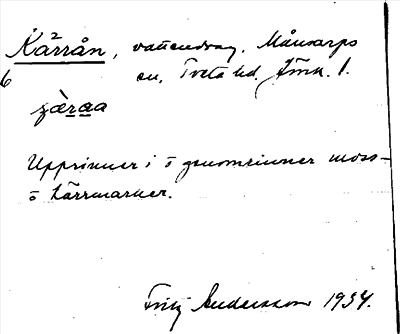 Kärrån, vattendrag, Månsarps
6 sn, Tveta hd. Jönk. l.
ɟæ̀raa
Upprinner i o genomrinner moss-
o kärrmarker.
Fritz Andersson 1934.